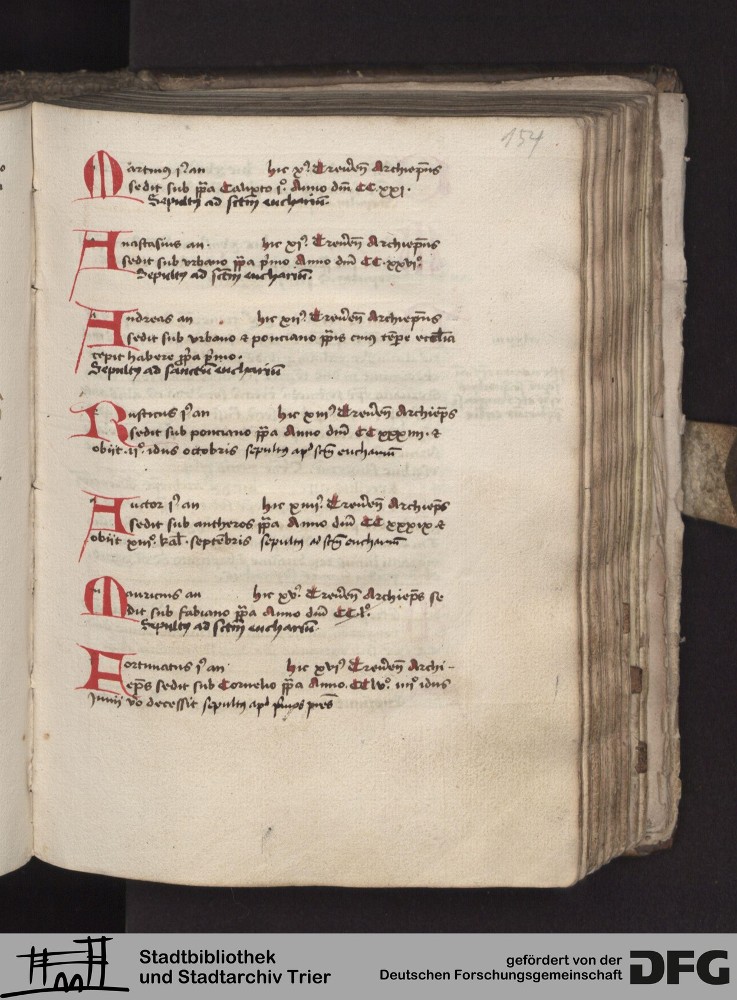 154
Martinus s an hic x9 Treueren Archiepus
sedit sub ppa Calixto j9. Anno dm CC.xxi.
Sepultus ad sctm eucharium.
Anastasius an. hic xj9 Treueren Archiepus
sedit sub vrbano ppa primo Anno dm CC.xxvi9
Sepultus ad sctm eucharium.
Andreas an hic xij9 Treueren Archiepus
sedit sub vrbano & ponciano ppis cuius tepe ecclia
cepit habere ppa primo.
Sepultus ad sanctum eucharium
Rusticus an hic xiij9 Treueren Archieps
sedit sub ponciano ppa Anno dm CC xxxiiij. &
obijt ij9. idus octobris sepultus apd sctm eucharium
Auctor an hic xiiij9 Treueren Archieps
sedit sub antheros ppa Anno dm CC xxxix &
obijt xiij9 kal. septebris sepultus ad sctm eucharium
Mauricius an hic xv9 Treueren Archieps se
dit sub fabiano ppa Anno dm CC l9.
Sepultus ad sctm eucharium.
Fortunatus an. hic xvj9 Treueren Archi-
eps sedit sub Cornelio ppa Anno. CC lv9. iiij9 idus
Junij vo decessit sepultus apd
Stadtbibliothek
und Stadtarchiv Trier
gefördert von der
Deutschen Forschungsgemeinschaft
DFG